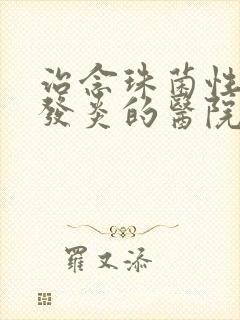 治念珠菌性
發炎的醫院
羅又添